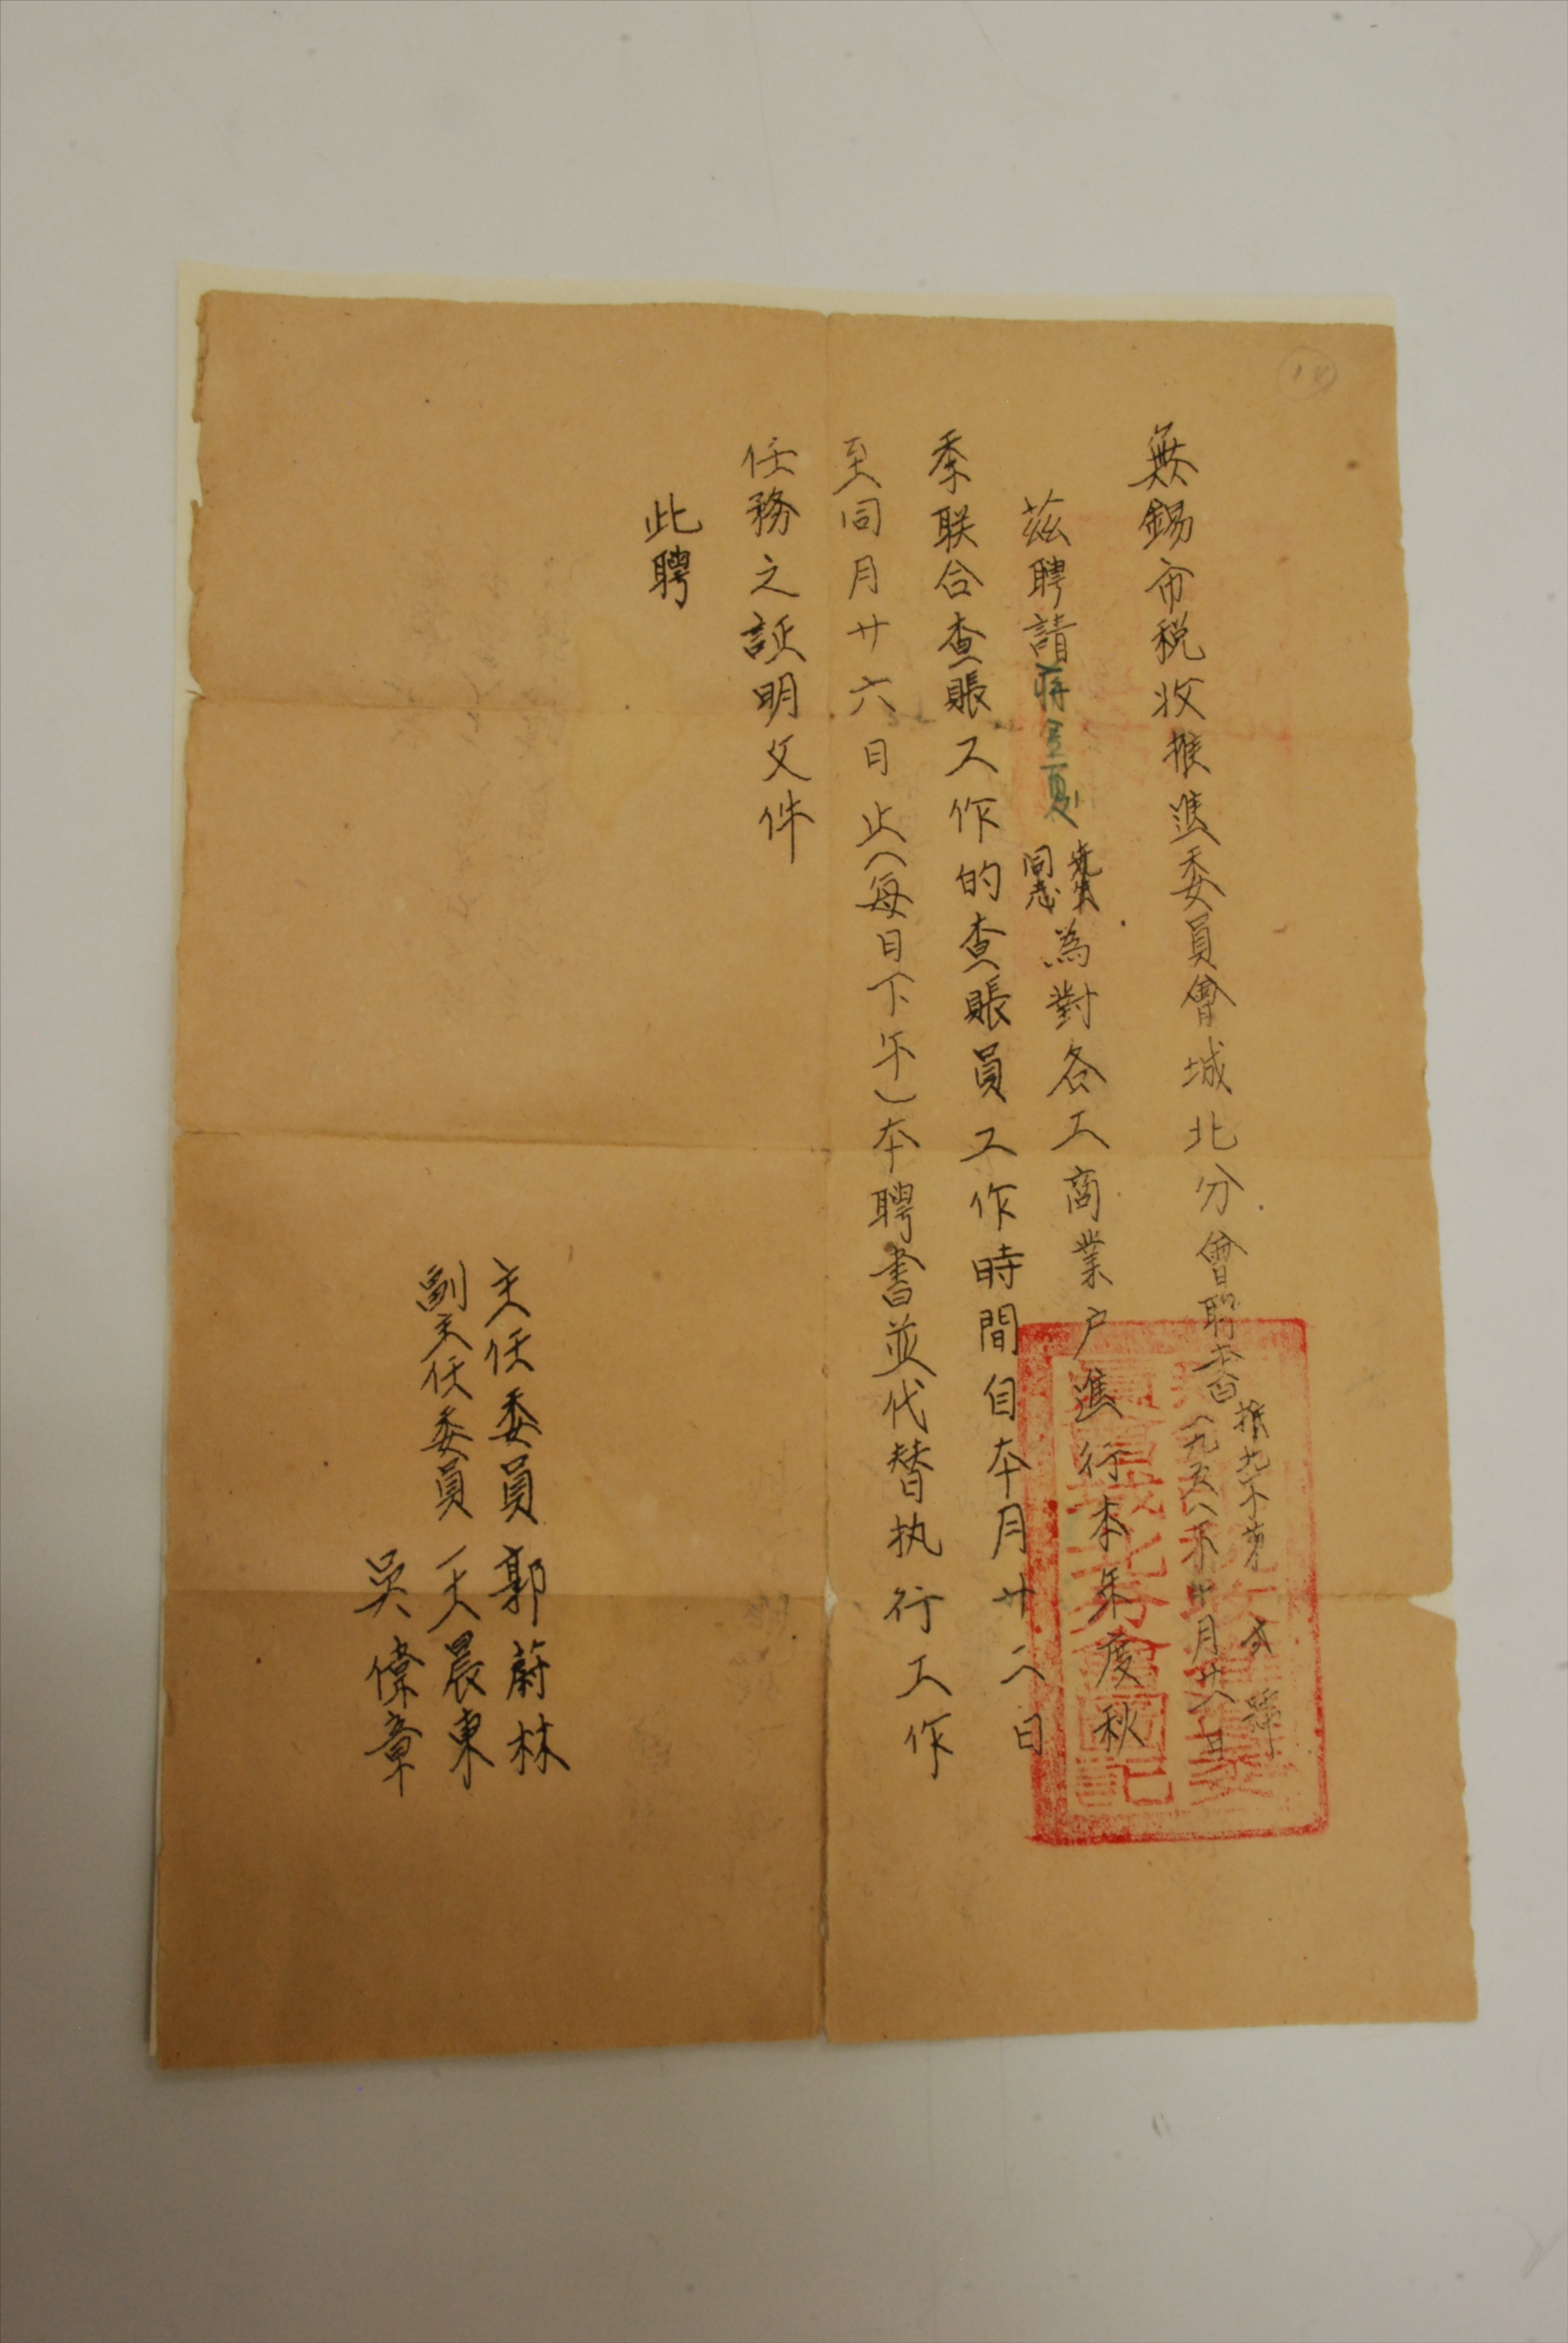 無錫市税收推進委員會城北分會聘書
推九字第 弍 號
一九五八年十月廿八日
茲聘請蔣金夏先生同志為對各工商業户進行本年度秋
季联合查賬工作的查賬員工作時間自本月廿二日
至同月廿六日止（每日下午）本聘書並代替执行工作
任務之証明文件
此聘
主任委員 郭蔚林
副主任委員 王晨東
吳偉章